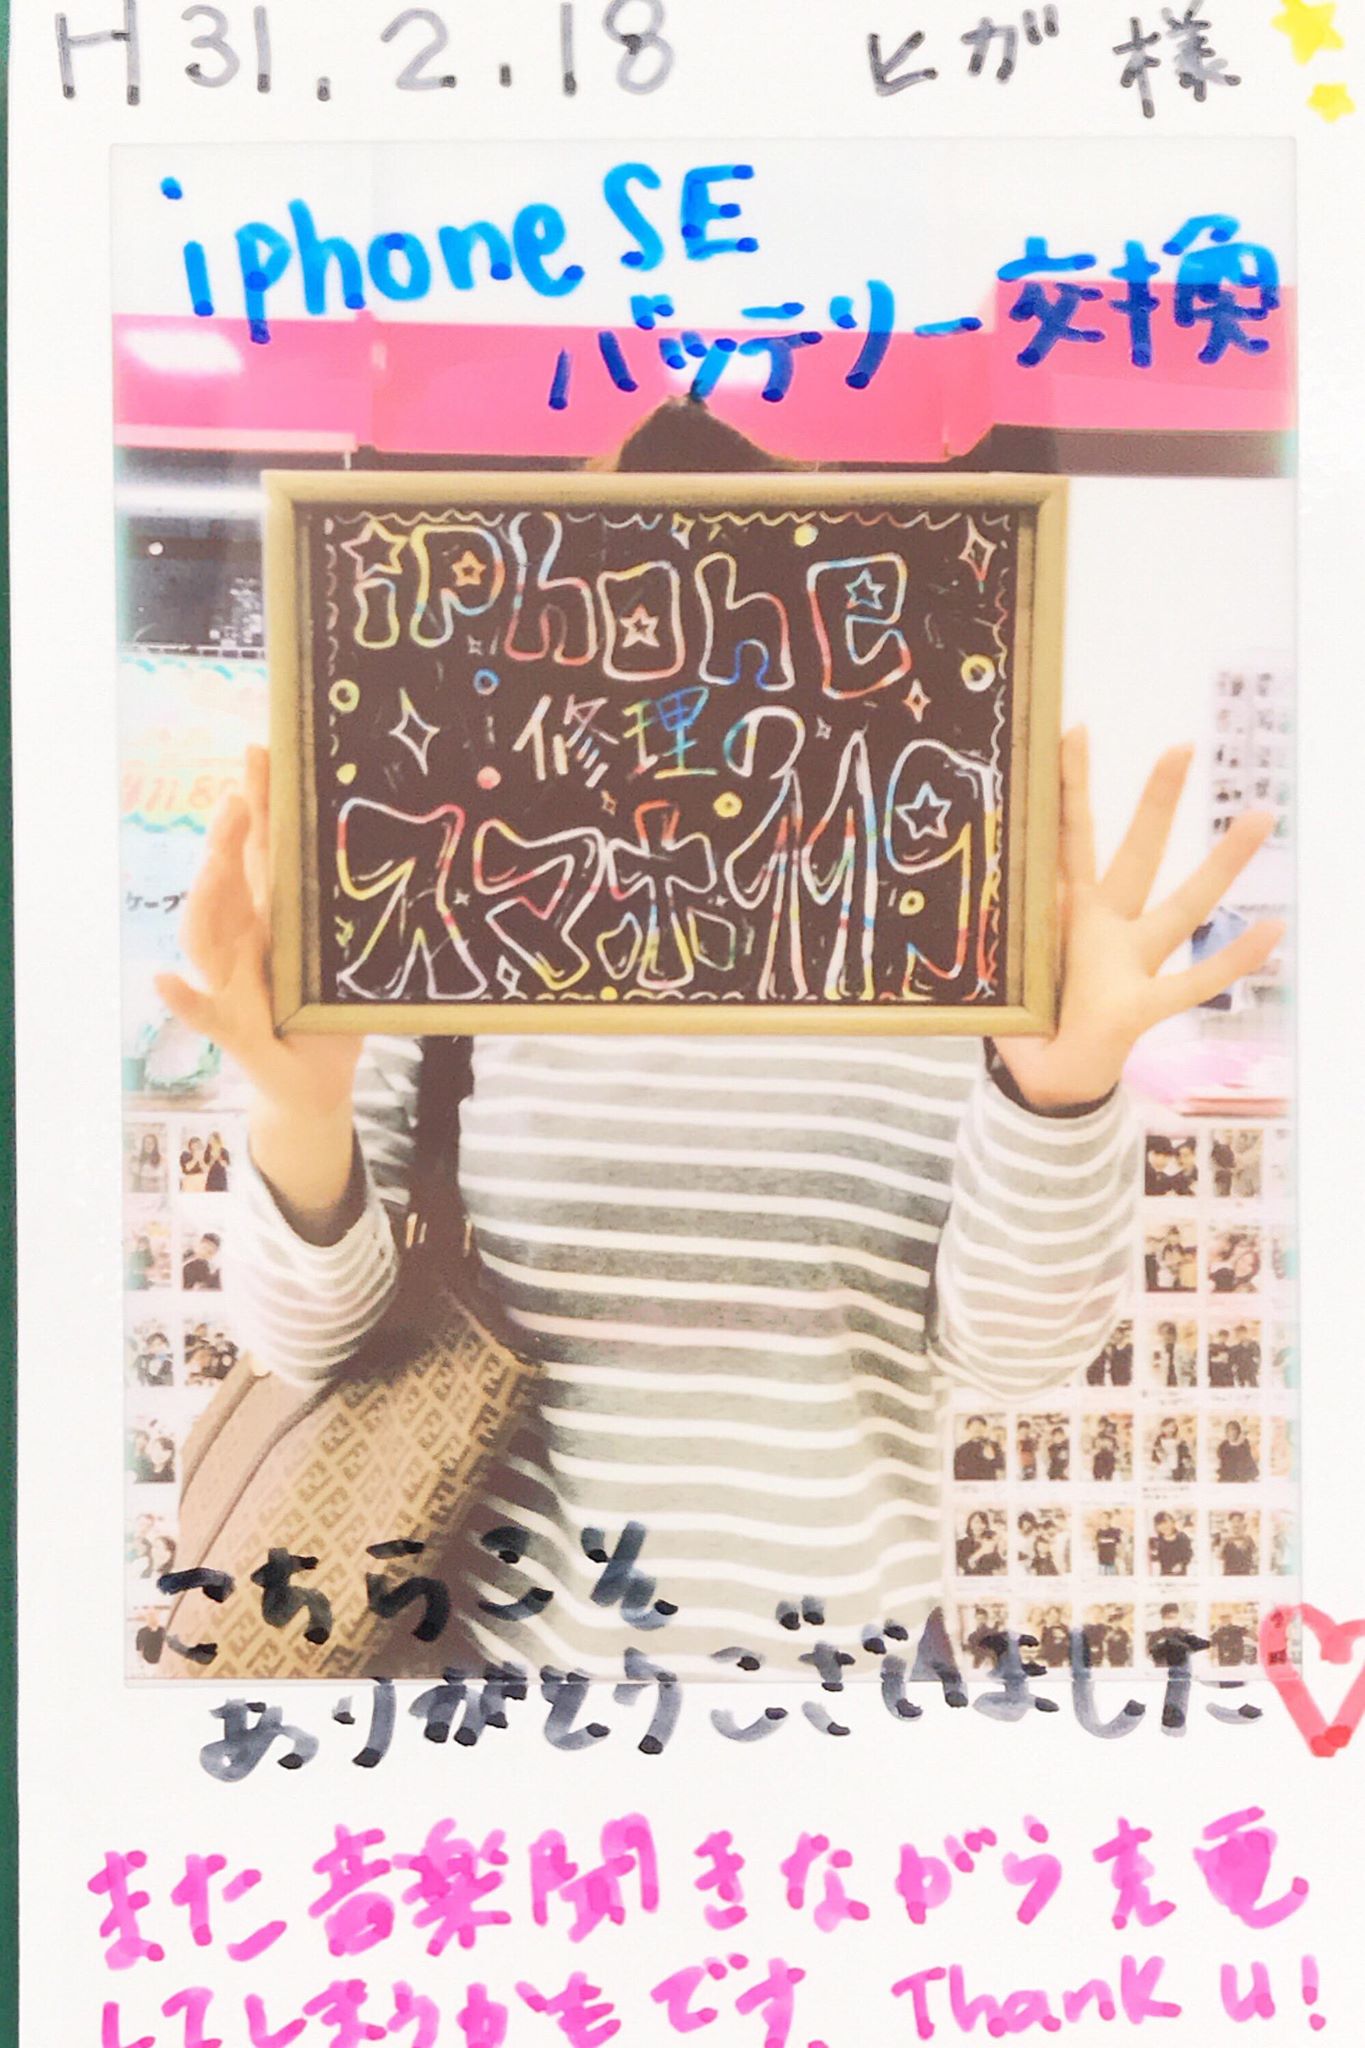 H31.2.18 ヒガ様
iphone SE
バッテリー交換
iPhone
修理の
スマホ119
ケープ
こちらこそ
ありがとうございました
また音楽聞きながら充電
してしまうかもです。Thank U!